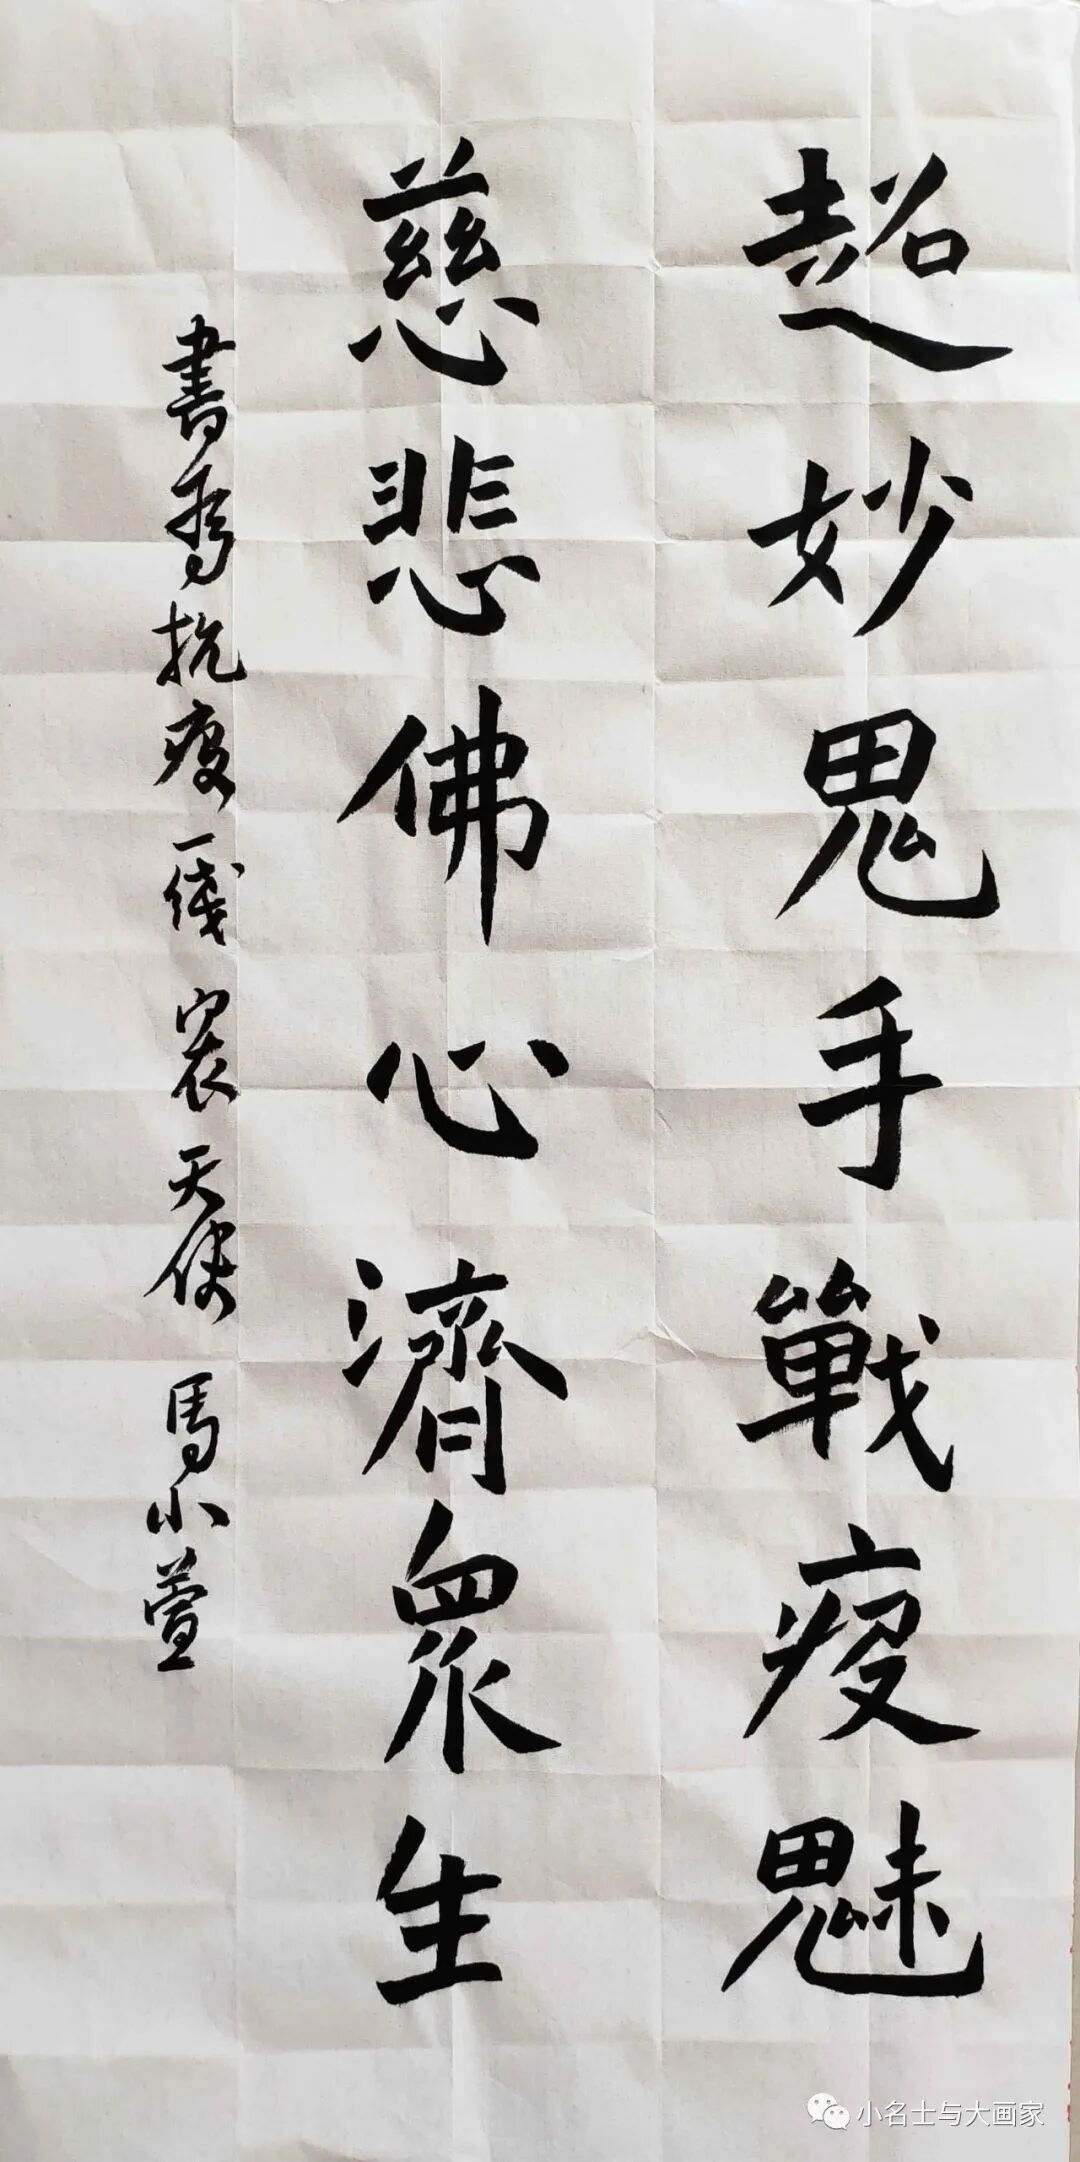 超妙鬼手戰疫魅
慈悲佛心濟衆生
書為抗疫一線白衣天使 馬小萱
小名士与大画家